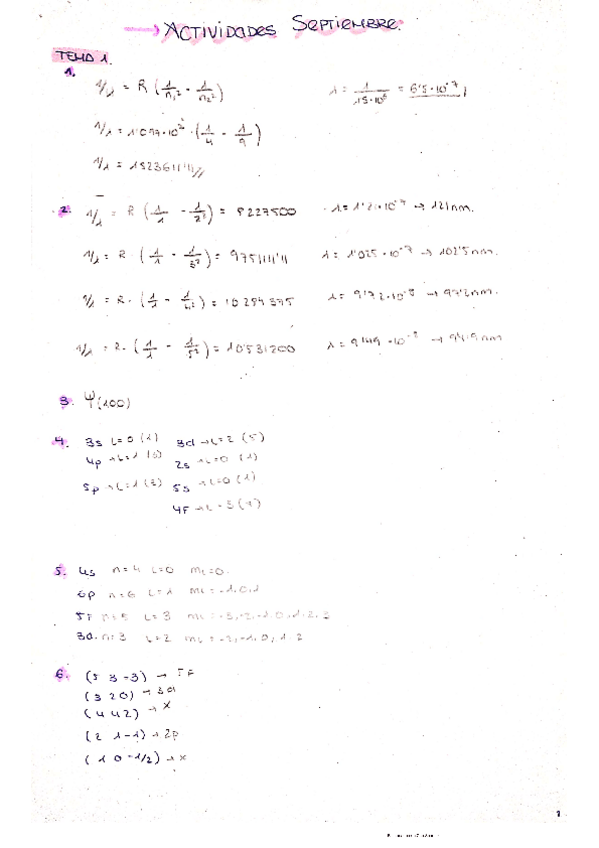 ACTIVIDADES SEPTIEMBRE.
TEMA 1.
1.
1/λ = R (1/n₁² - 1/n₂²)
λ = 1/15·10⁵ = 6'5·10⁻⁷
1/λ = 1'097·10⁷·(1/4 - 1/9)
1/λ = 1523611'11
2. 1/λ = R (1/1 - 1/2²) = 8227500 λ = 1'2·10⁻⁷ → 121nm.
1/λ = R·(1/1 - 1/3²) = 9751111'11 λ = 1'025·10⁻⁷ → 102'5nm.
1/λ = R·(1/1 - 1/4²) = 10284375 λ = 9'72·10⁻⁸ → 97'2nm.
1/λ = R·(1/1 - 1/5²) = 10'531200 λ = 9'49·10⁻⁸ → 94'9nm
3. Ψ(100)
4. 3s L=0 (1) 3d → L=2 (5)
4p → L=1 (3) 2s → L=0 (1)
5p → L=1 (3) 5s → L=0 (1)
4F → L=3 (7)
5. 4s n=4 L=0 mL=0.
6p n=6 L=1 mL=-1,0,1
5F n=5 L=3 mL=-3,-2,-1,0,1,2,3
3d. n=3 L=2 mL=-2,-1,0,1,2
6. (5 3 -3) → 5F
(3 2 0) → 3d
(4 4 2) → X
(2 1 -1) → 2p
(1 0 -1/2) → x